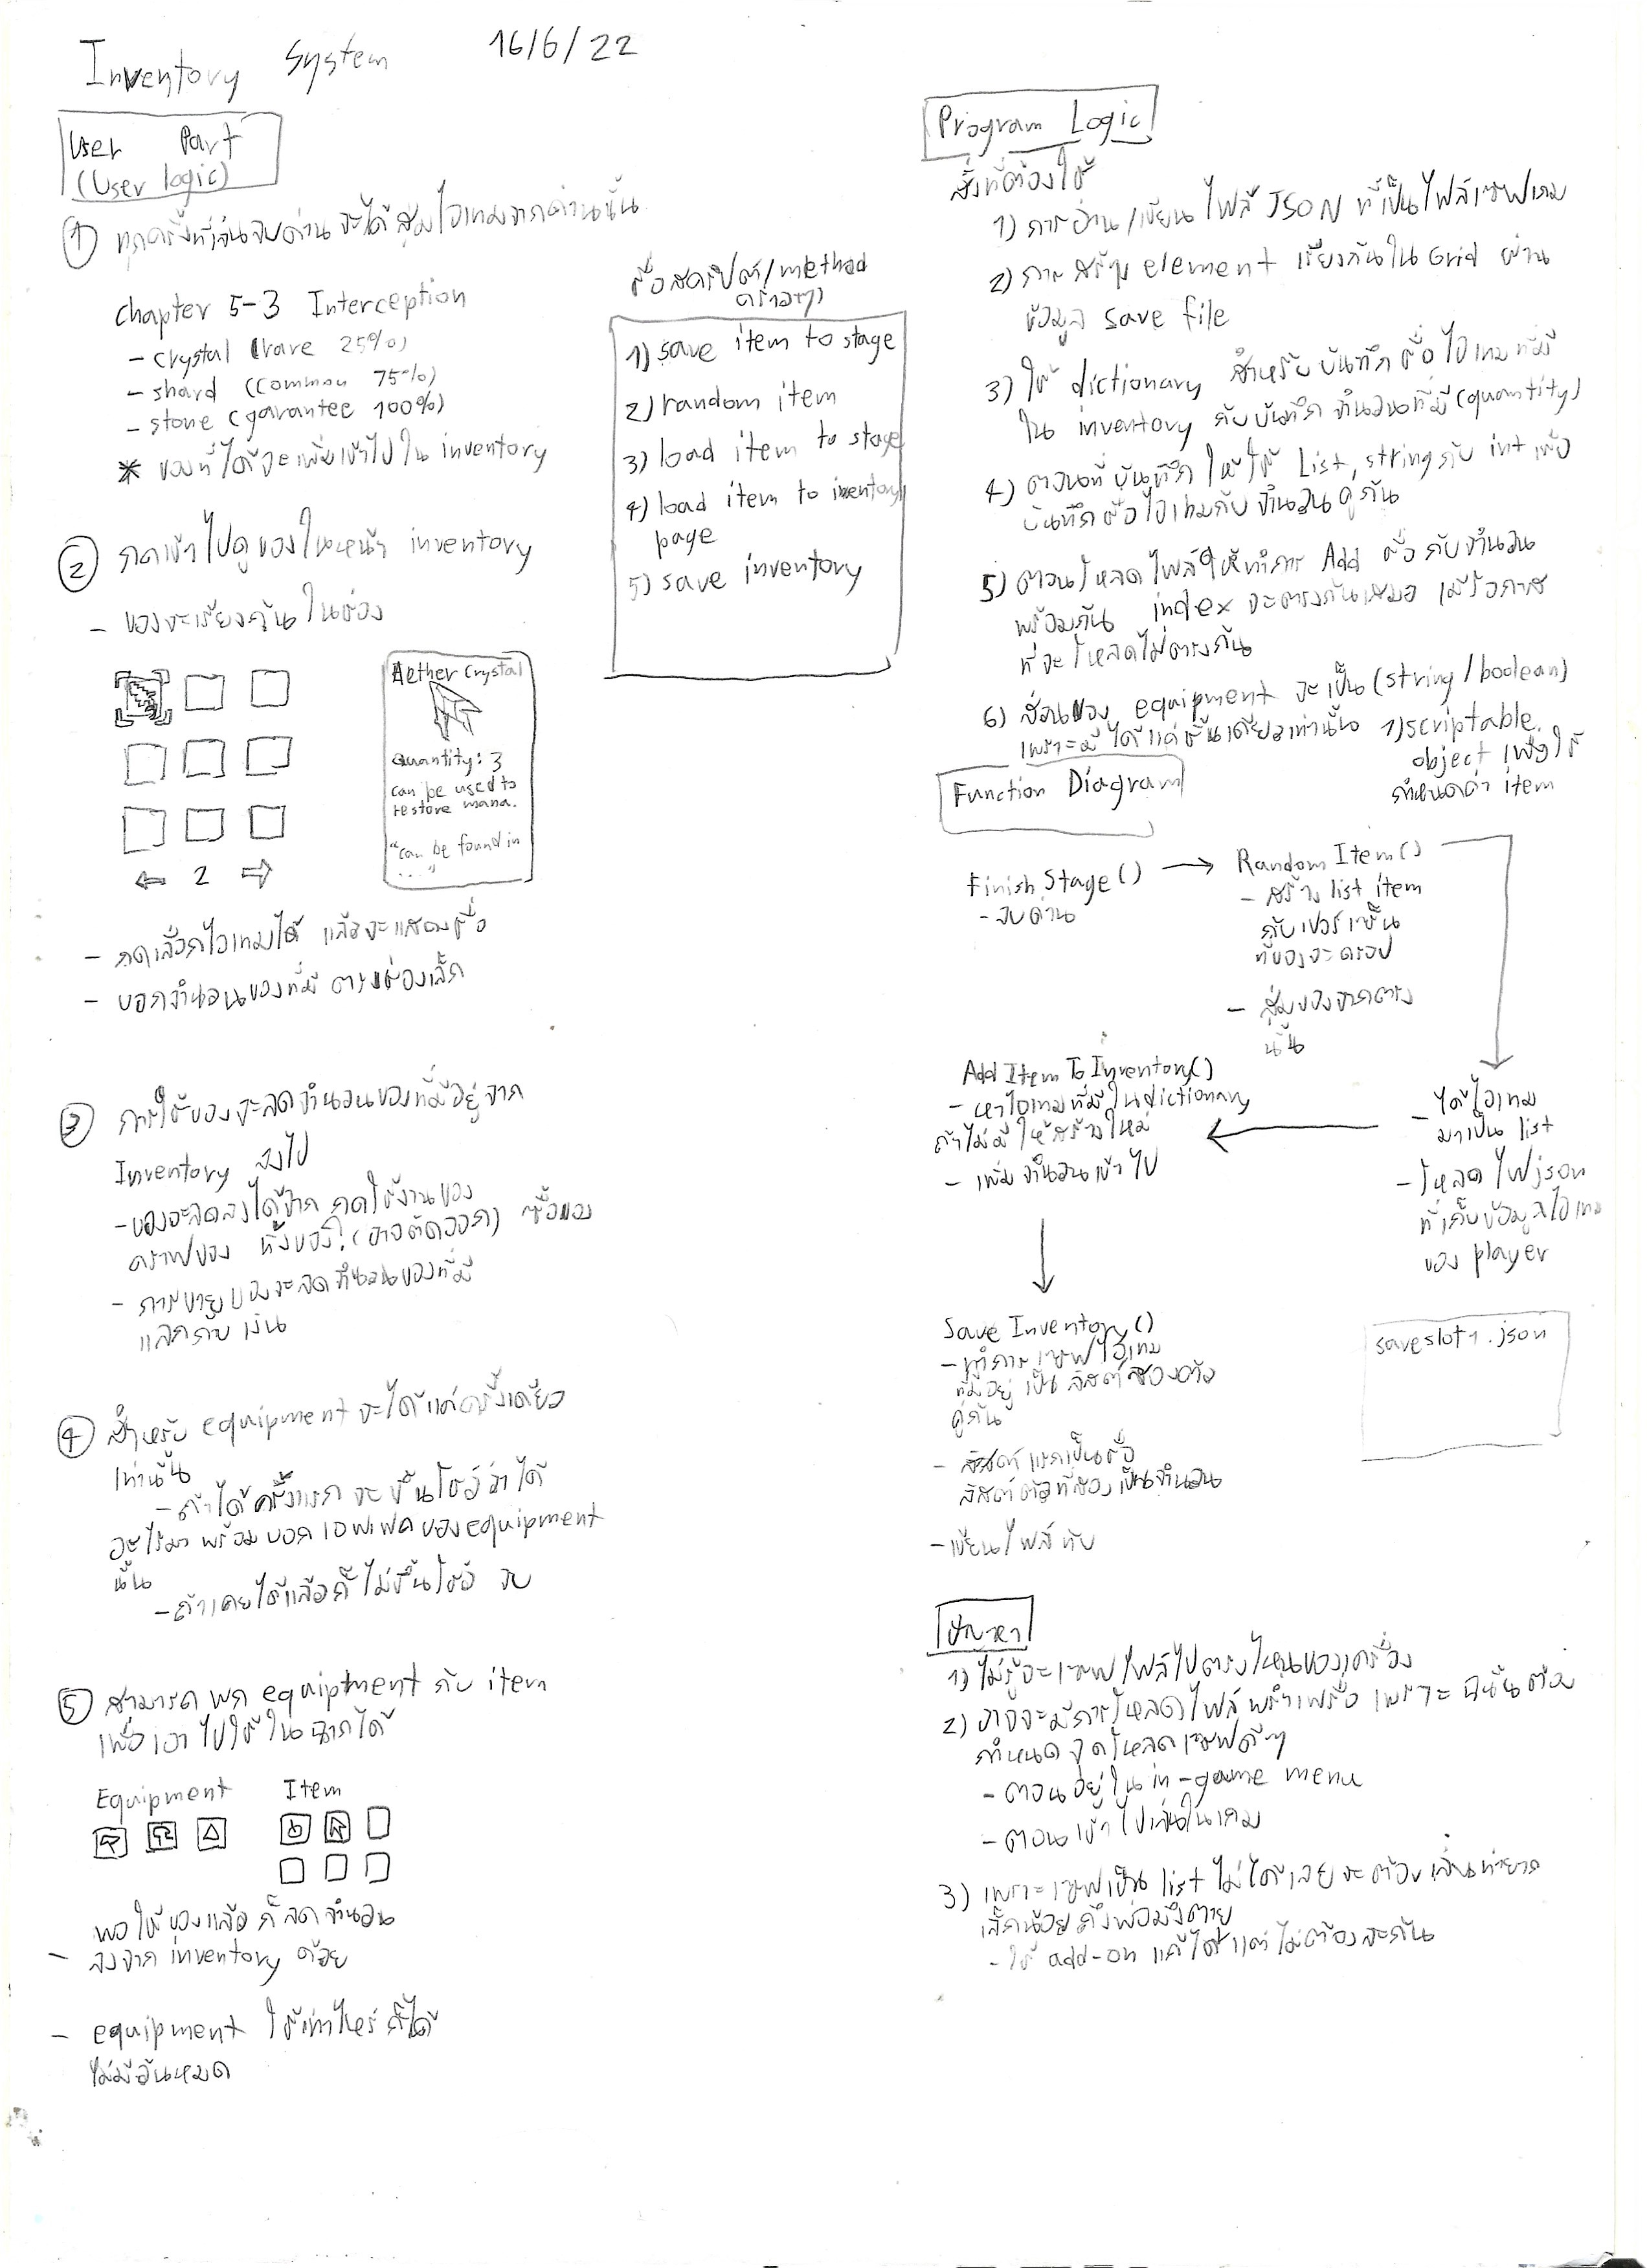 Inventory System 16/6/22
User Part
(User logic)
① ทุกครั้งที่เล่นจบด่าน จะได้สุ่มไอเทมจากด่านนั้น
chapter 5-3 Interception
- crystal (rare 25%)
- shard (common 75%)
- stone (garantee 100%)
* ของที่ได้จะเพิ่มเข้าไปใน inventory
② กดเข้าไปดูของในหน้า inventory
- ของจะเรียงกันในช่อง
Aether Crystal
Quantity: 3
can be used to
restore mana.
"can be found in
...."
← 2 →
- กดเลือกไอเทมได้ แล้วจะแสดงชื่อ
- บอกจำนวนของที่มี ตรงช่องเล็ก
③ การใช้ของจะลดจำนวนของที่มีอยู่จาก
Inventory ลงไป
- ของจะลดลงได้จาก กดใช้งานของ
คราฟของ ทิ้งของ? (อาจตัดออก) ซื้อของ
- การขายของจะลดจำนวนของที่มี
แลกกับ เงิน
④ สำหรับ equipment จะได้แค่ครั้งเดียว
เท่านั้น
- ถ้าได้ครั้งแรก จะขึ้นโชว์ว่าได้
อะไรมา พร้อมบอก เอฟเฟคของ equipment
นั้น
- ถ้าเคยได้แล้วก็ไม่ขึ้นโชว์ จบ
⑤ สามารถ พก equiptment กับ item
เพื่อเอาไปใช้ในฉากได้
Equipment Item
พอใช้ของแล้ว ก็ลดจำนวน
- ลงจาก inventory ด้วย
- equipment ใช้เท่าไหร่ก็ได้
ไม่มีวันหมด
ชื่อสคริปต์/method
คร่าวๆ
1) save item to stage
2) random item
3) load item to stage
4) load item to inventory
page
5) save inventory
Program Logic
สิ่งที่ต้องใช้
1) การอ่าน/เขียน ไฟล์ JSON ที่เป็นไฟล์เซฟเกม
2) การสร้าง element เรียงกันใน Grid ผ่าน
ข้อมูล save file
3) ใช้ dictionary สำหรับบันทึกชื่อไอเทมที่มี
ใน inventory กับบันทึกจำนวนที่มี (quantity)
4) ตอนที่บันทึก ให้ใช้ List, string กับ int เพื่อ
บันทึกชื่อไอเทมกับจำนวนคู่กัน
5) ตอนโหลดไฟล์ให้ทำการ Add ชื่อกับจำนวน
พร้อมกัน index จะตรงกันเสมอ ไม่มีโอกาส
ที่จะโหลดไม่ตรงกัน
6) ส่วนของ equipment จะเป็น (string/boolean)
เพราะมีได้แค่ชิ้นเดียวเท่านั้น 7) scriptable
object เพื่อใช้
กำหนดค่า item
Function Diagram
Finish Stage() → Random Item()
- จบด่าน
- สร้าง list item
กับเปอร์เซ็น
ที่ของจะดรอป
- สุ่มของจากตรง
นั้น
- ได้ไอเทม
มาเป็น list
- โหลดไฟjson
ที่เก็บข้อมูลไอเทม
ของ player
Add Item To Inventory()
- หาไอเทมที่มีในdictionary
ถ้าไม่มีให้สร้างใหม่
- เพิ่มจำนวนเข้าไป
Save Inventory()
- ทำการเซฟไอเทม
ที่มีอยู่ เป็นลิสต์สองตัว
คู่กัน
- ลิสต์แรกเป็นชื่อ
ลิสต์ตัวที่สองเป็นจำนวน
- เขียนไฟล์ทับ
saveslot1.json
ปัญหา
1) ไม่รู้จะเซฟไฟล์ไปตรงไหนของเครื่อง
2) อาจจะมีการโหลดไฟล์พร่ำเพรื่อ เพราะฉนั้นต้อง
กำหนดจุดโหลดเซฟดีๆ
- ตอนอยู่ใน in-game menu
- ตอนเข้าไปเล่นในเกม
3) เพราะเซฟเป็น list ไม่ได้เลยจะต้อง เล่นท่ายาก
เล็กน้อยถึงพ่อมึงตาย
- ใช้ add-on แก้ได้ แต่ไม่ต้องละกัน